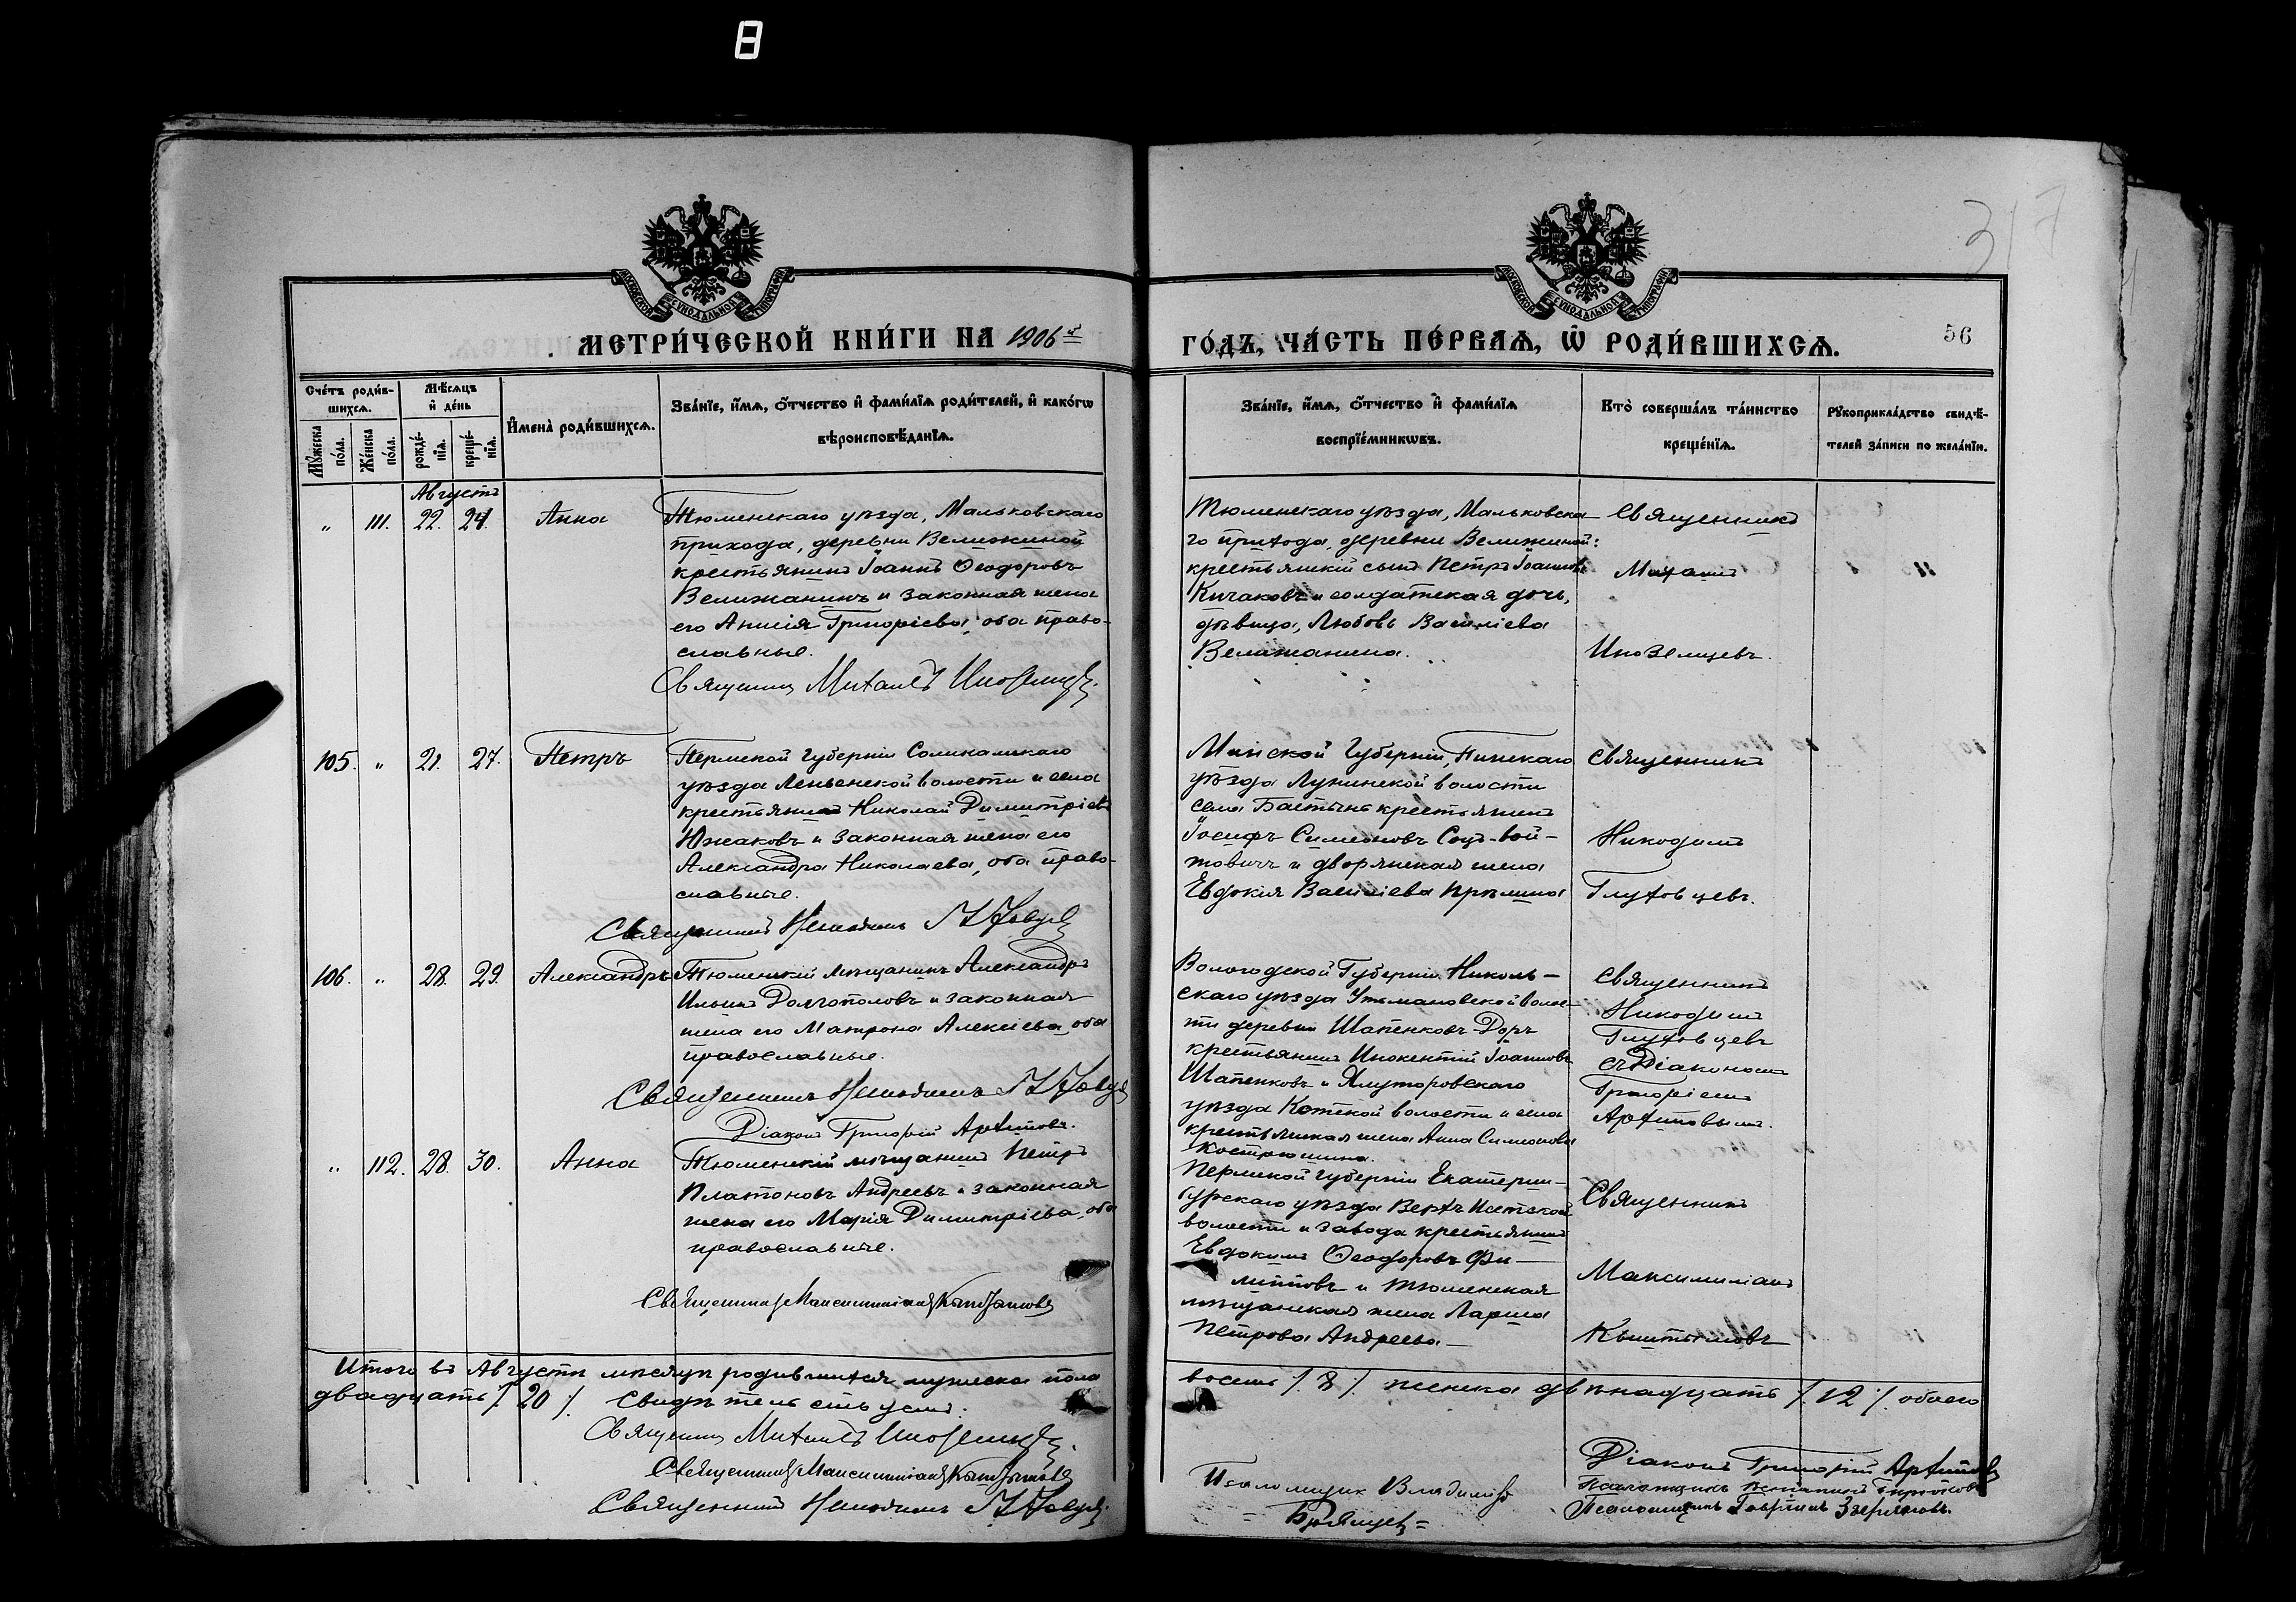 8
317
МОСКОВСКОЙ СѴНОДАЛЬНОЙ ТИПОГРАФІИ
МОСКОВСКОЙ СѴНОДАЛЬНОЙ ТИПОГРАФІИ
МЕТРИ́ЧЕСКОЙ КНИ́ГИ НА 1906й
ГО́ДЪ, ЧА́СТЬ ПЕ́РВАѦ, Ѡ РОДИ́ВШИХСѦ.
56
Сче́тъ роди́в-
шихсѧ.
Мѣ́сѧцъ
и҆ де́нь
И҆мена̀ роди́вшихсѧ.
Зва́нїе, и҆́мѧ, ѻ҆́тчество и҆ фами́лїѧ роди́телей, и҆ како́гѡ
вѣроисповѣ́данїѧ.
Мꙋ́жеска по́ла.
Же́нска по́ла.
рожде́-нїѧ.
креще́-нїѧ.
Зва́нїе, и҆́мѧ, ѻ҆́тчество и҆ фами́лїѧ
воспрїе́мникѡвъ.
Кто̀ соверша́лъ та́инство
креще́нїѧ.
Рꙋкоприкла́дство свидѣ́-
телей за́писи по жела́нїю.
Августъ
„ 111. 22. 24. Анна
Тюменскаго уѣзда, Мальковскаго
прихода, деревни Велижаной
крестьянинъ Іоаннъ Ѳеодоровъ
Велижанинъ и законная жена
его Анисія Григоріева, оба право-
славные.
Священникъ Михаилъ Иноземцевъ.
Тюменскаго уѣзда, Мальковска-
го прихода, деревни Велижаной:
крестьянскій сынъ Петръ Іоанновъ
Кичаковъ и солдатская дочь,
дѣвица, Любовь Василіева
Велижанина.
Священникъ
Михаилъ
Иноземцевъ.
105. „ 21. 27. Петръ
Пермской губерніи Соликамскаго
уѣзда Леньвенской волости и села
крестьянинъ Николай Димитріевъ
Южаковъ и законная жена его
Александра Николаева, оба право-
славные.
Священникъ Никодимъ Глуховцевъ
Минской Губерніи, Пинскаго
уѣзда Лунинской волости
села Бастынь крестьянинъ
Іосифъ Симеоновъ Соц-вой-
товичъ и дворянская жена
Евдокія Василіева
Священникъ
Никодимъ
Глуховцевъ.
106. „ 28. 29. Александръ
Тюменскій мѣщанинъ Александръ
Ильинъ Долгополовъ и законная
жена его Матрона Алексіева, оба
православные.
Священникъ Никодимъ Глуховцевъ
Діаконъ Григорій Архиповъ.
Вологодской Губерніи Николь-
скаго уѣзда Утмановской волос-
ти деревни Шапенковъ-Доръ
крестьянинъ Инокентій Іоанновъ
Шапенковъ и Ялуторовскаго
уѣзда Котской волости и села
крестьянская жена Анна Симеонова
Кострюшина.
Священникъ
Никодимъ
Глуховцевъ
съ Діакономъ
Григоріемъ
Архиповымъ.
„ 112. 28. 30. Анна
Тюменскій мѣщанинъ Петръ
Платоновъ Андреевъ и законная
жена его Марія Димитріева, оба
православные.
Священникъ Максимиліанъ Кыштымовъ
Пермской губерніи Екатерин-
бургскаго уѣзда Верхъ Исетской
волости и завода крестьянинъ
Евдокимъ Ѳеодоровъ Фи-
липповъ и Тюменская
мѣщанская жена Лариса
Петрова Андреева
Священникъ
Максимиліанъ
Кыштымовъ
Итого въ Августѣ мѣсяцѣ родившихся мужеска пола
восемь /. 8 /. женска двѣнадцать /. 12 /. обоего
двадцать /. 20 /. Свидѣтельствуемъ:
Священникъ Михаилъ Иноземцевъ.
Священникъ Максимиліанъ Кыштымовъ
Священникъ Никодимъ Глуховцевъ.
Псаломщик Владиміръ
= Брянцевъ =
Діаконъ Григорій Архиповъ
Псаломщикъ
Псаломщикъ Гавріилъ Звѣряковъ.